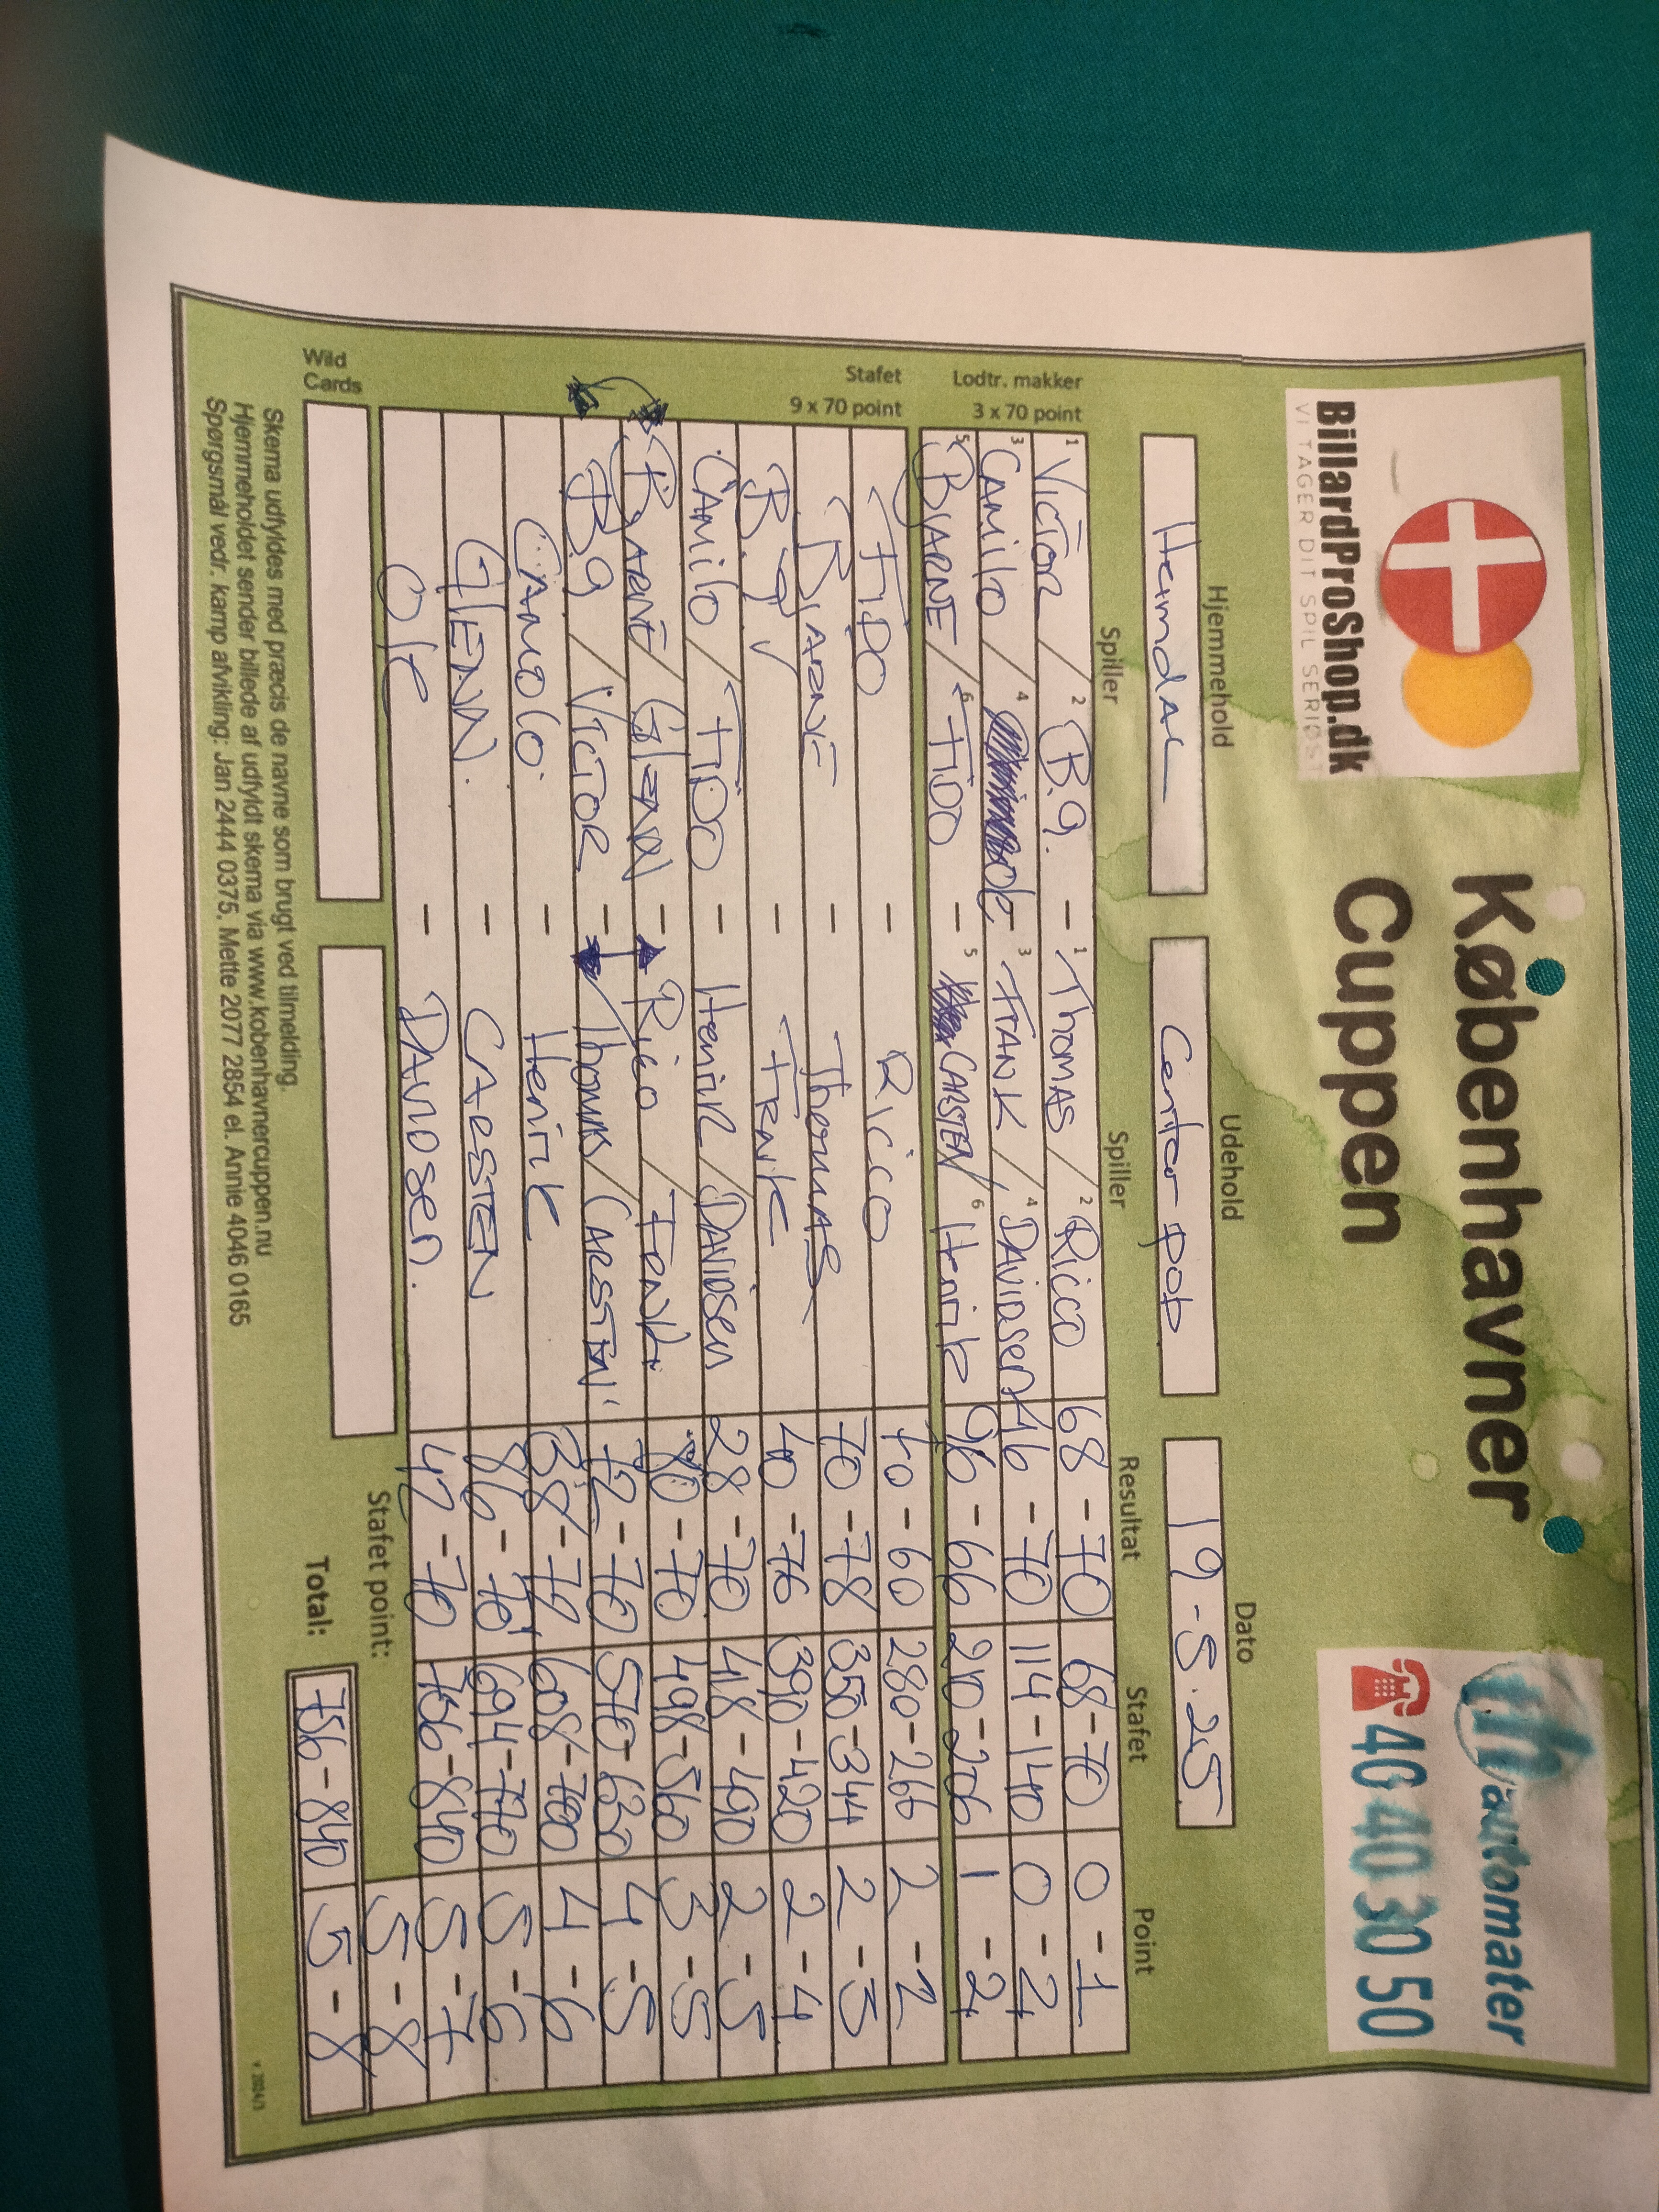 BillardProShop.dk
VI TAGER DIT SPIL SERIØST
Københavner
Cuppen
automater
40 40 30 50
Hjemmehold Udehold Dato
Heimdal Center pob 19-5-25
Spiller Spiller Resultat Stafet Point
Lodtr. makker
3 x 70 point
1 Victor / 2 B.9. - 1 Thomas / 2 Rico 68-70 68-70 0-1
3 Camilo / 4 ole - 3 FRANK / 4 DAVIDSEN 46-70 114-140 0-2
5 BJARNE / 6 FIDO - 5 CARSTEN / 6 Henrik 96-66 210-206 1-2
Stafet
9 x 70 point
FIDO - Rico 70-60 280-266 2-2
BJARNE - Thomas 70-78 350-344 2-3
B.9 - FRANK 40-76 390-420 2-4
CAMILO / FIDO - Henrik / DAVIDSEN 28-70 418-490 2-5
BJARNE / GLENN - Rico / FRANK 80-70 498-560 3-5
B.9 / VICTOR - Thomas / CARSTEN 72-70 570-630 4-5
CAMOLO. - Henrik 38-70 608-700 4-6
GLENN. - CARSTEN 86-70 694-770 5-6
Ole - DAVIDSEN. 42-70 756-840 5-7
Stafet point: 5-8
Wild
Cards
Total: 756-840 5-8
Skema udfyldes med præcis de navne som brugt ved tilmelding.
Hjemmeholdet sender billede af udfyldt skema via www.kobenhavnercuppen.nu
Spørgsmål vedr. kamp afvikling: Jan 2444 0375, Mette 2077 2854 el. Annie 4046 0165
v. 2024/1